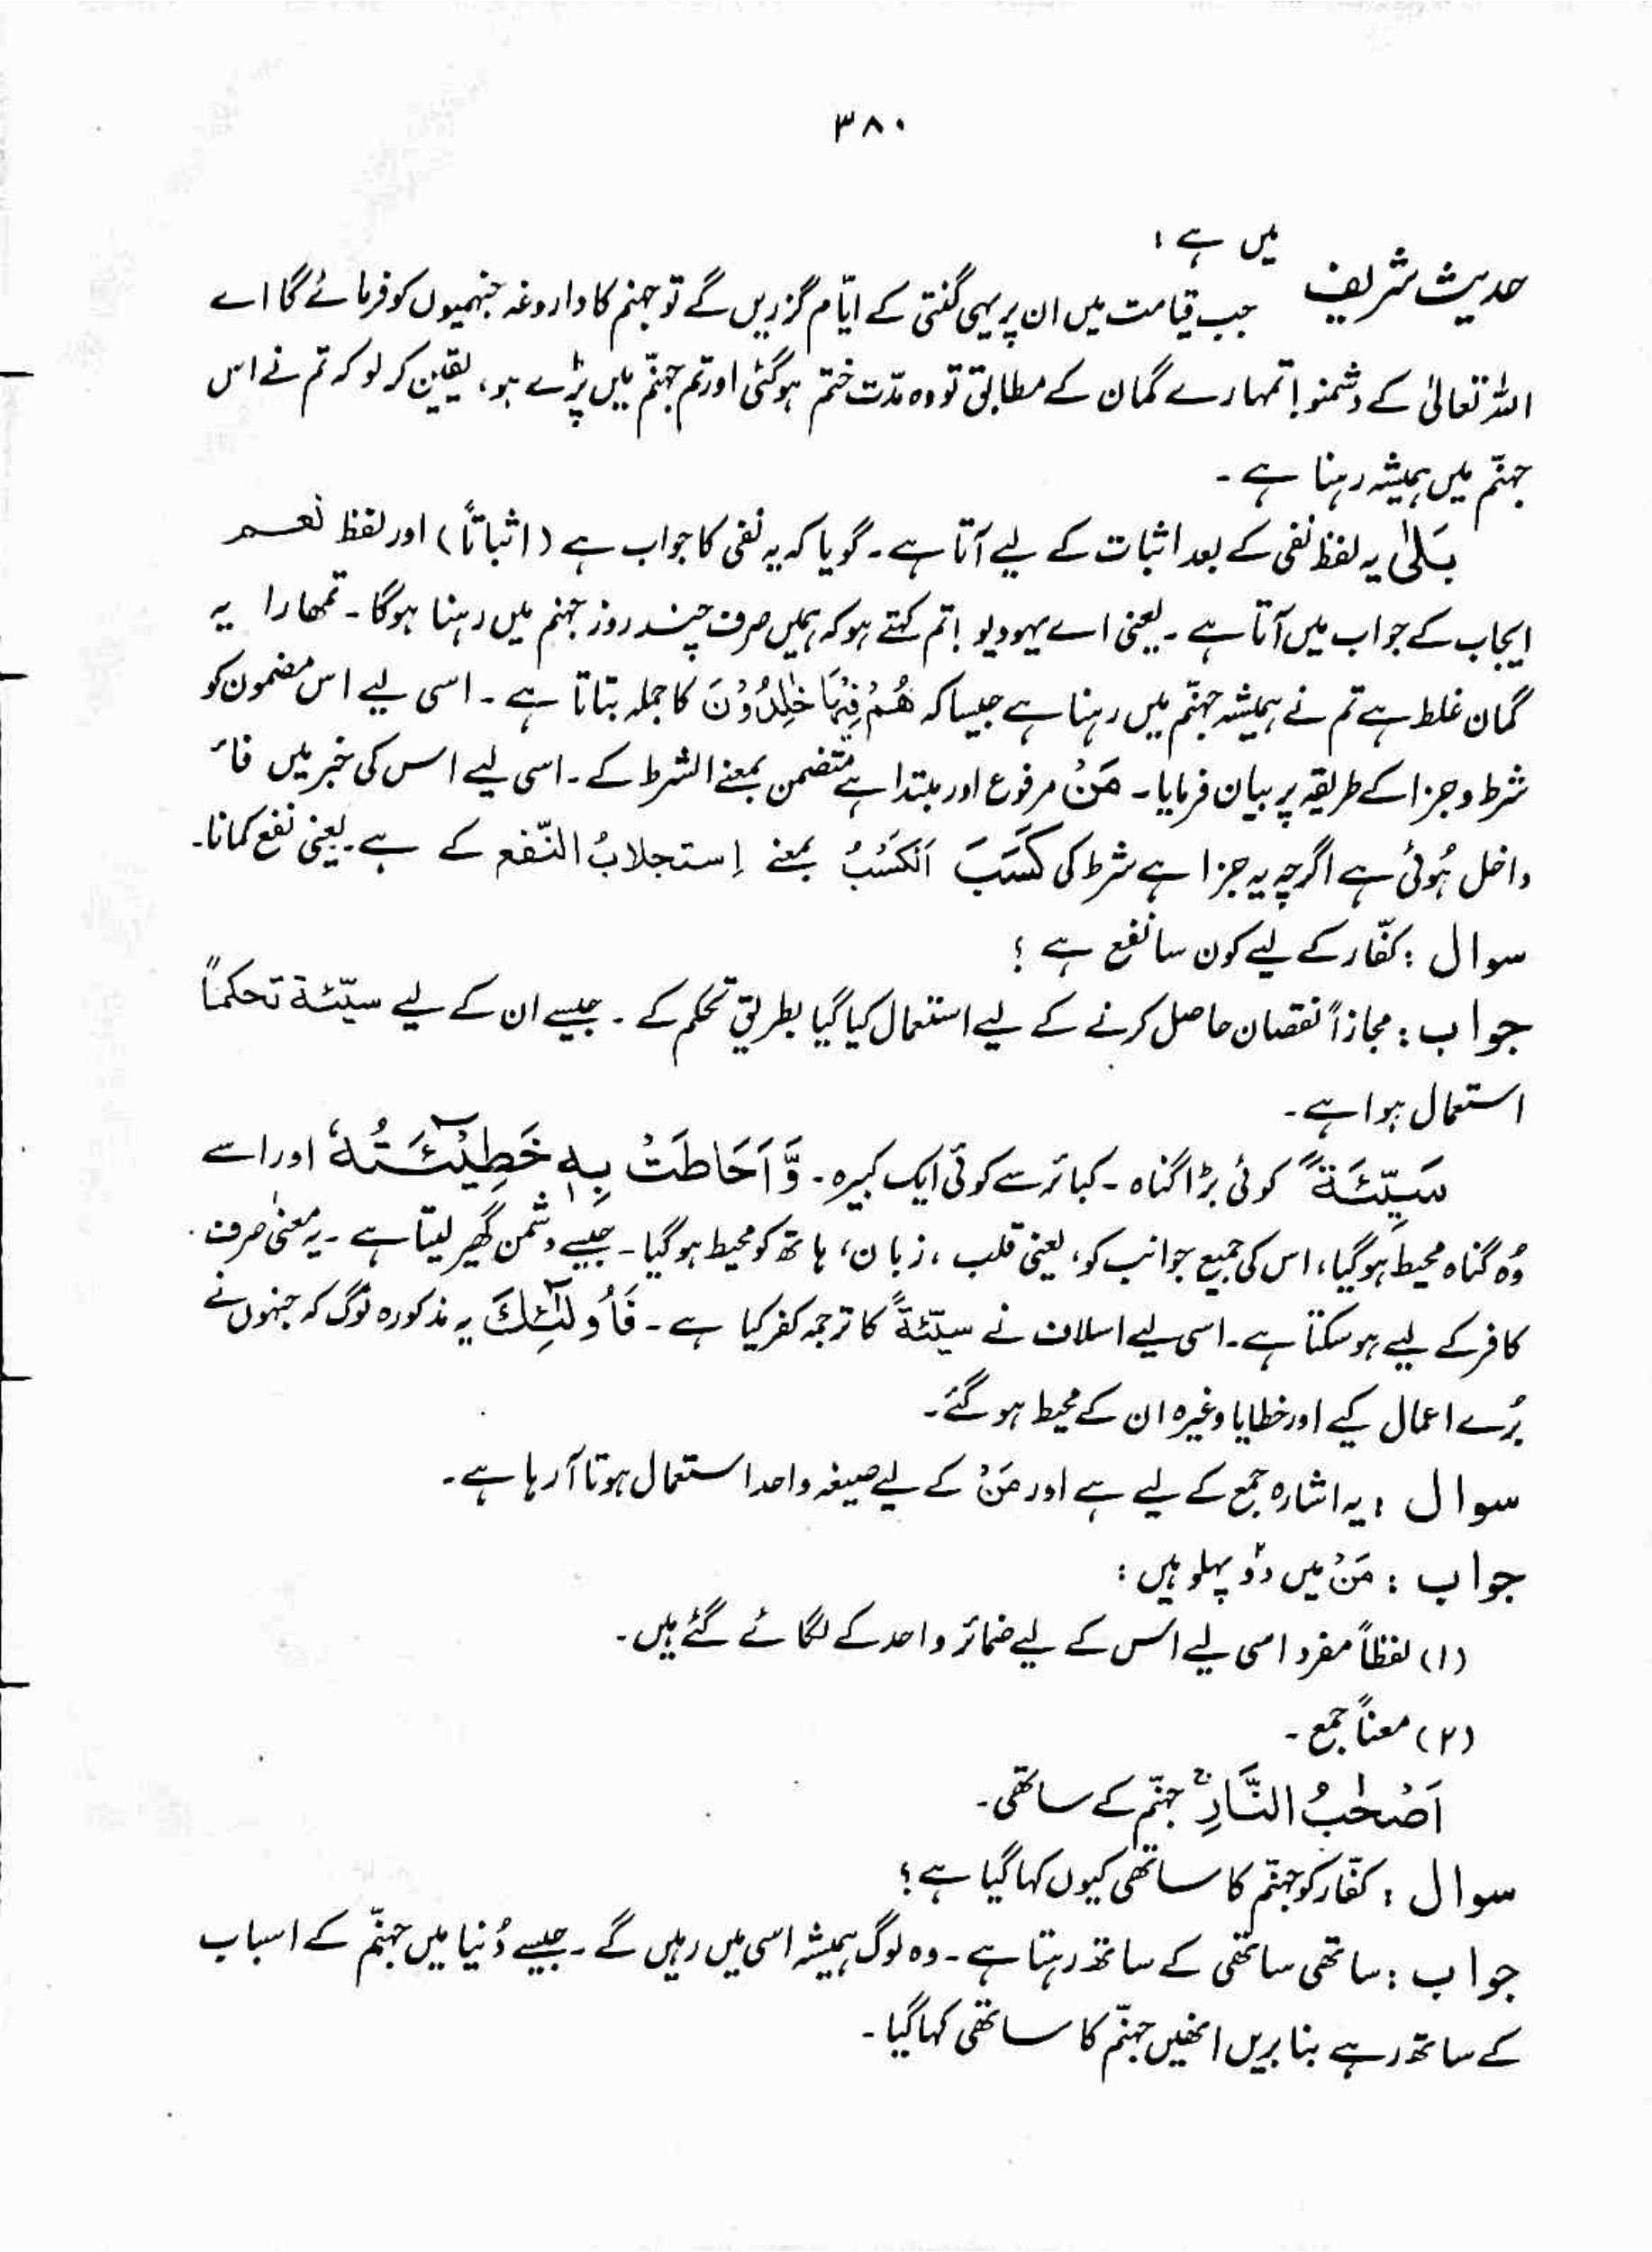 ۳۸۰
حدیث شریف میں ہے :
جب قیامت میں ان پر یہی گنتی کے ایّام گزریں گے تو جہنم کا داروغہ جہنمیوں کو فرمائے گا اے
اللہ تعالیٰ کے دشمنو! تمہارے گمان کے مطابق تو وہ مدّت ختم ہوگئی اور تم جہنّم میں پڑے ہو، یقین کر لو کہ تم نے اس
جہنّم میں ہمیشہ رہنا ہے ۔
بَلٰی یہ لفظ نفی کے بعد اثبات کے لیے آتا ہے ۔ گویا کہ یہ نفی کا جواب ہے (اثباتاً) اور لفظ نعم
ایجاب کے جواب میں آتا ہے ۔ یعنی اے یہودیو ! تم کہتے ہو کہ ہمیں صرف چند روز جہنم میں رہنا ہوگا ۔ تمھارا یہ
گمان غلط ہے تم نے ہمیشہ جہنّم میں رہنا ہے جیسا کہ ھُمْ فِیْہَا خٰلِدُوْنَ کا جملہ بتاتا ہے ۔ اسی لیے اس مضمون کو
شرط و جزا کے طریقہ پر بیان فرمایا ۔ مَنْ مرفوع اور مبتدا ہے متضمن بمعنے الشرط کے ۔ اسی لیے اس کی خبر میں فاء
داخل ہُوئی ہے اگرچہ یہ جزا ہے شرط کی کَسَبَ اَلکَسْبُ بمعنے اِستجلابُ النّفع کے ہے ۔ یعنی نفع کمانا ۔
سوال : کفّار کے لیے کون سا نفع ہے ؟
جواب : مجازاً نقصان حاصل کرنے کے لیے استعمال کیا گیا بطریقِ تحکم کے ۔ جیسے ان کے لیے سیّئۃ تحکماً
استعمال ہوا ہے ۔
سَیِّئَۃً کوئی بڑا گناہ ۔ کبائر سے کوئی ایک کبیرہ ۔ وَّاَحَاطَتْ بِہٖ خَطِیْٓئَتُہٗ اور اسے
وُہ گناہ محیط ہوگیا ، اس کی جمیع جوانب کو، یعنی قلب ، زبان ، ہاتھ کو محیط ہوگیا ۔ جیسے دشمن گھیر لیتا ہے ۔ یہ معنٰی صرف
کافر کے لیے ہوسکتا ہے ۔ اسی لیے اسلاف نے سیّئۃً کا ترجمہ کفر کیا ہے ۔ فَاُولٰٓئِكَ یہ مذکورہ لوگ کہ جنہوں نے
بُرے اعمال کیے اور خطایا وغیرہ ان کے محیط ہو گئے ۔
سوال : یہ اشارہ جمع کے لیے ہے اور مَنْ کے لیے صیغہ واحد استعمال ہوتا آرہا ہے ۔
جواب : مَنْ میں دوؔ پہلو ہیں :
(۱) لفظاً مفرد اسی لیے اس کے لیے ضمائر واحد کے لگائے گئے ہیں ۔
(۲) معناً جمع ۔
اَصْحٰبُ النَّارِ ج جہنّم کے ساتھی ۔
سوال : کفّار کو جہنّم کا ساتھی کیوں کہا گیا ہے ؟
جواب : ساتھی ساتھی کے ساتھ رہتا ہے ۔ وہ لوگ ہمیشہ اسی میں رہیں گے ۔ جیسے دُنیا میں جہنّم کے اسباب
کے ساتھ رہے بنا بریں انھیں جہنّم کا ساتھی کہا گیا ۔